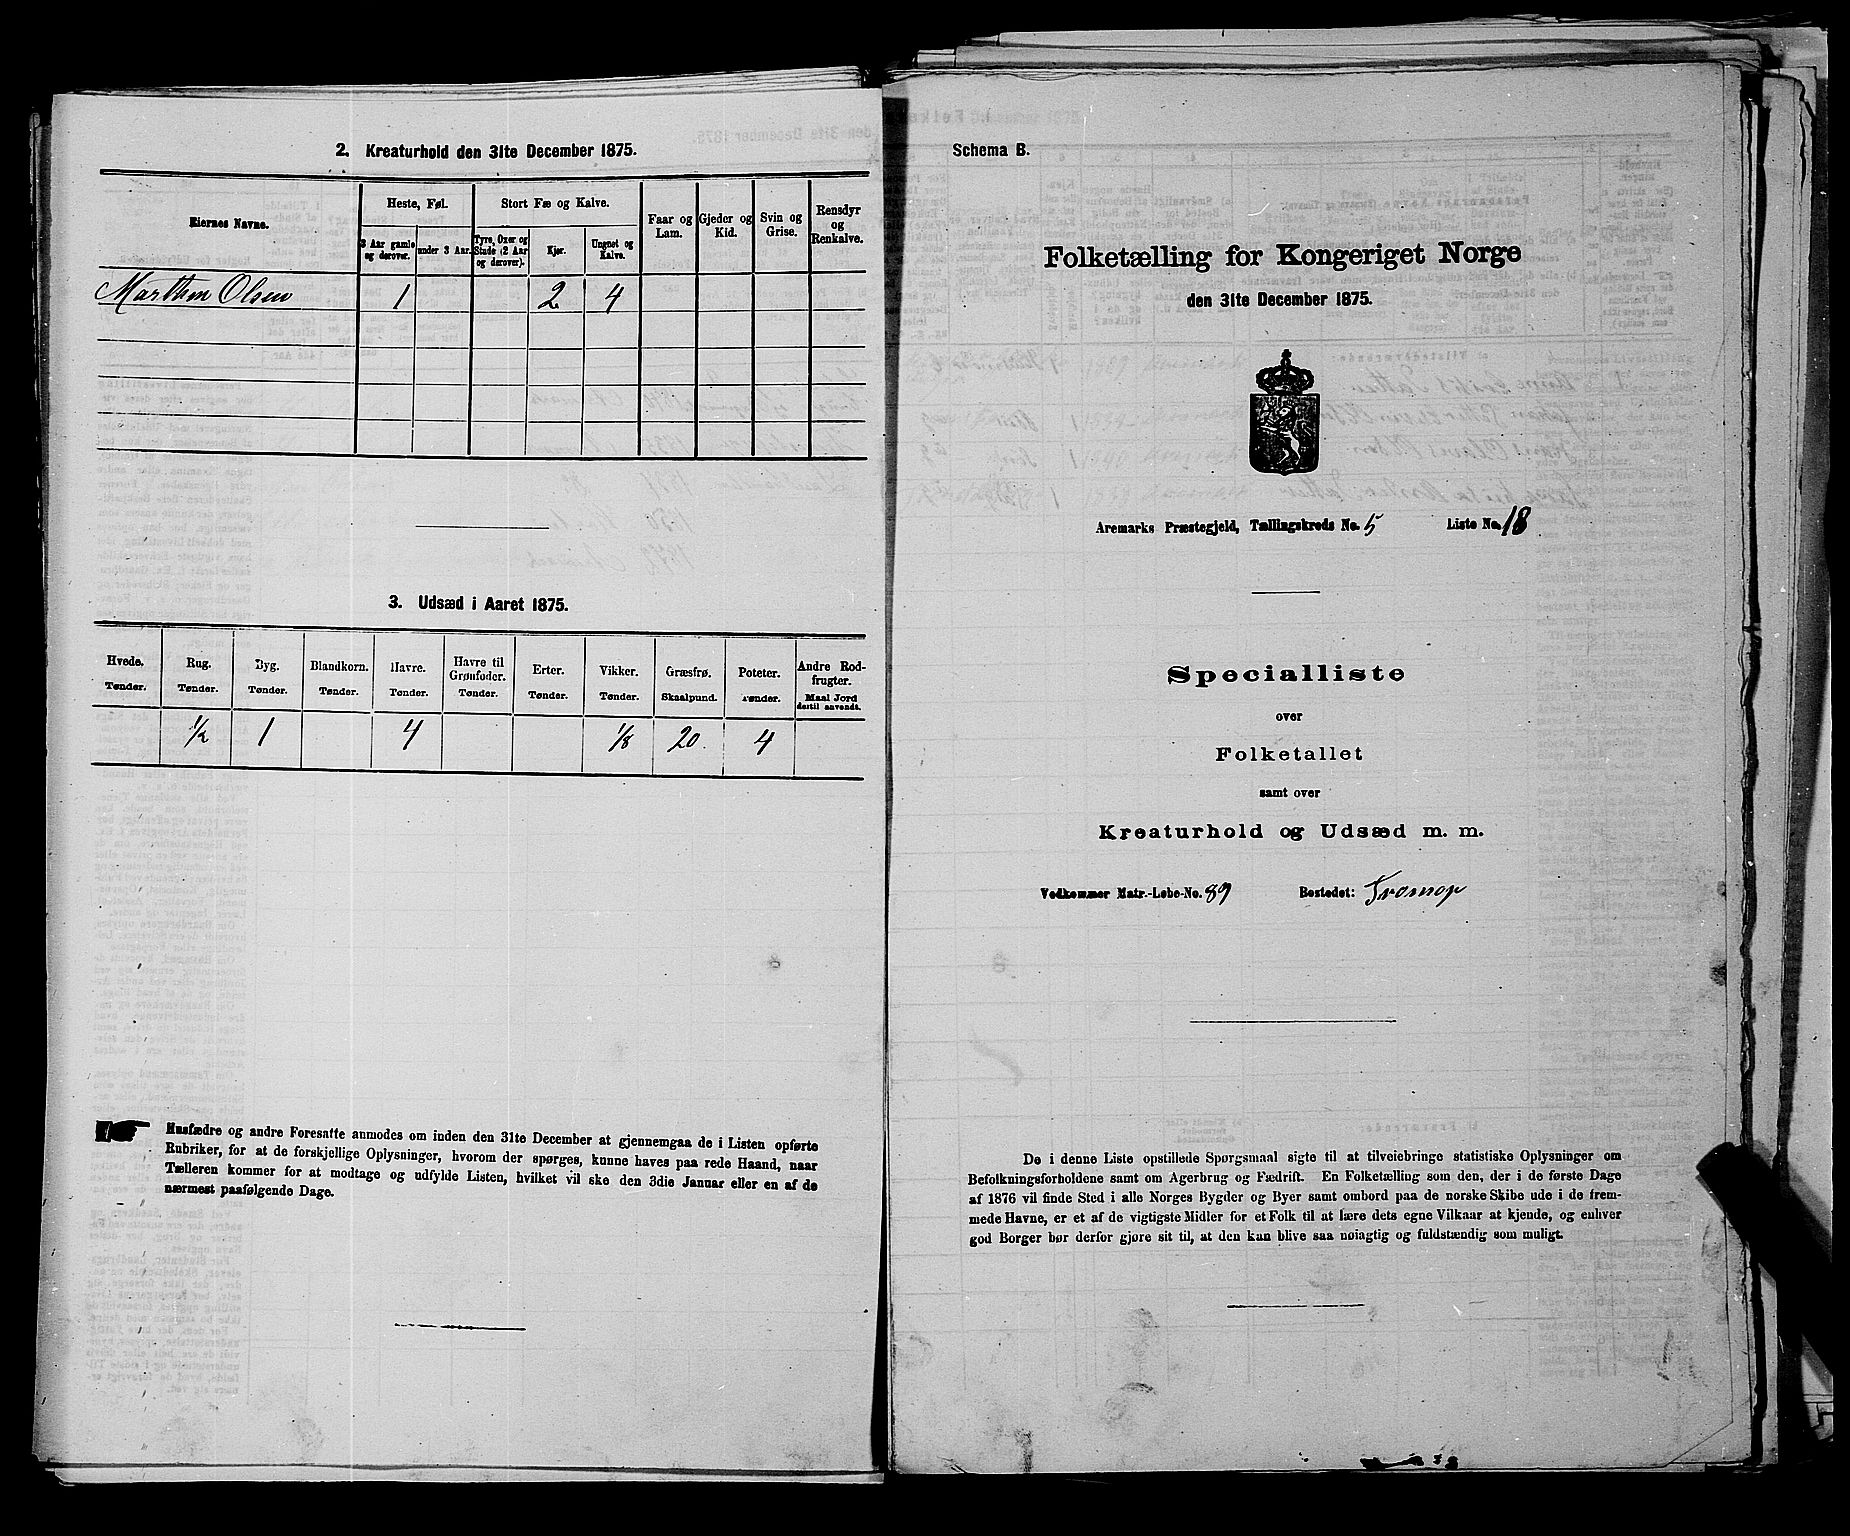 2. Kreaturhold den 31te December 1875.
Eiernes Navne.
Heste, Føl.
Stort Fæ og Kalve.
Faar og Lam.
Gjeder og Kid.
Svin og Grise.
Rensdyr og Renkalve.
3 Aar gamle og derover.
under 3 Aar.
Tyre, Oxer og Stude (2 Aar og derover).
Kjør.
Ungnøt og Kalve.
Marthen Olsen 1 2 4
3. Udsæd i Aaret 1875.
Hvede. Rug. Byg. Blandkorn. Havre. Havre til Grønfoder. Erter. Vikker. Græsfrø. Poteter. Andre Rodfrugter.
Tønder. Tønder. Tønder. Tønder. Tønder. Tønder. Tønder. Tønder. Skaalpund. Tønder. Maal Jord dertil anvendt.
1/2 1 4 1/8 20. 4
Husfædre og andre Foresatte anmodes om inden den 31te December at gjennemgaa de i Listen opførte
Rubriker, for at de forskjellige Oplysninger, hvorom der spørges, kunne haves paa rede Haand, naar
Tælleren kommer for at modtage og udfylde Listen, hvilket vil ske den 3die Januar eller en af de
nærmest paafølgende Dage.
Schema B.
Folketælling for Kongeriget Norge
den 31te December 1875.
Aremarks Præstegjeld, Tællingskreds No. 5 Liste No. 18
Specialliste
over
Folketallet
samt over
Kreaturhold og Udsæd m. m.
Vedkommer Matr.-Løbe-No. 89 Bostedet:
De i denne Liste opstillede Spørgsmaal sigte til at tilveiebringe statistiske Oplysninger om
Befolkningsforholdene samt om Agerbrug og Fædrift. En Folketælling som den, der i de første Dage
af 1876 vil finde Sted i alle Norges Bygder og Byer samt ombord paa de norske Skibe ude i de frem-
mede Havne, er et af de vigtigste Midler for et Folk til at lære dets egne Vilkaar at kjende, og enhver
god Borger bør derfor gjøre sit til, at den kan blive saa nøiagtig og fuldstændig som muligt.